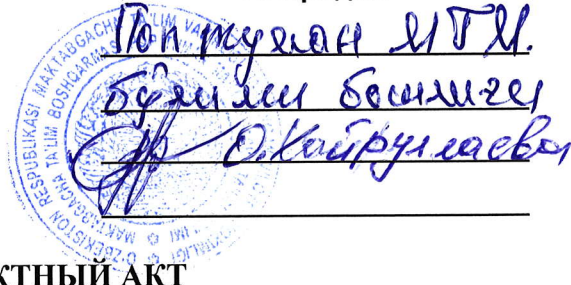 Поп туман МТМ.
бўлими бошлиғи
О.Хайруллаева
O'ZBEKISTON RESPUBLIKASI MAKTABGACHA TA'LIM
MAKTABGACHA TA'LIM BOSHQARMA
КТНЫЙ АКТ